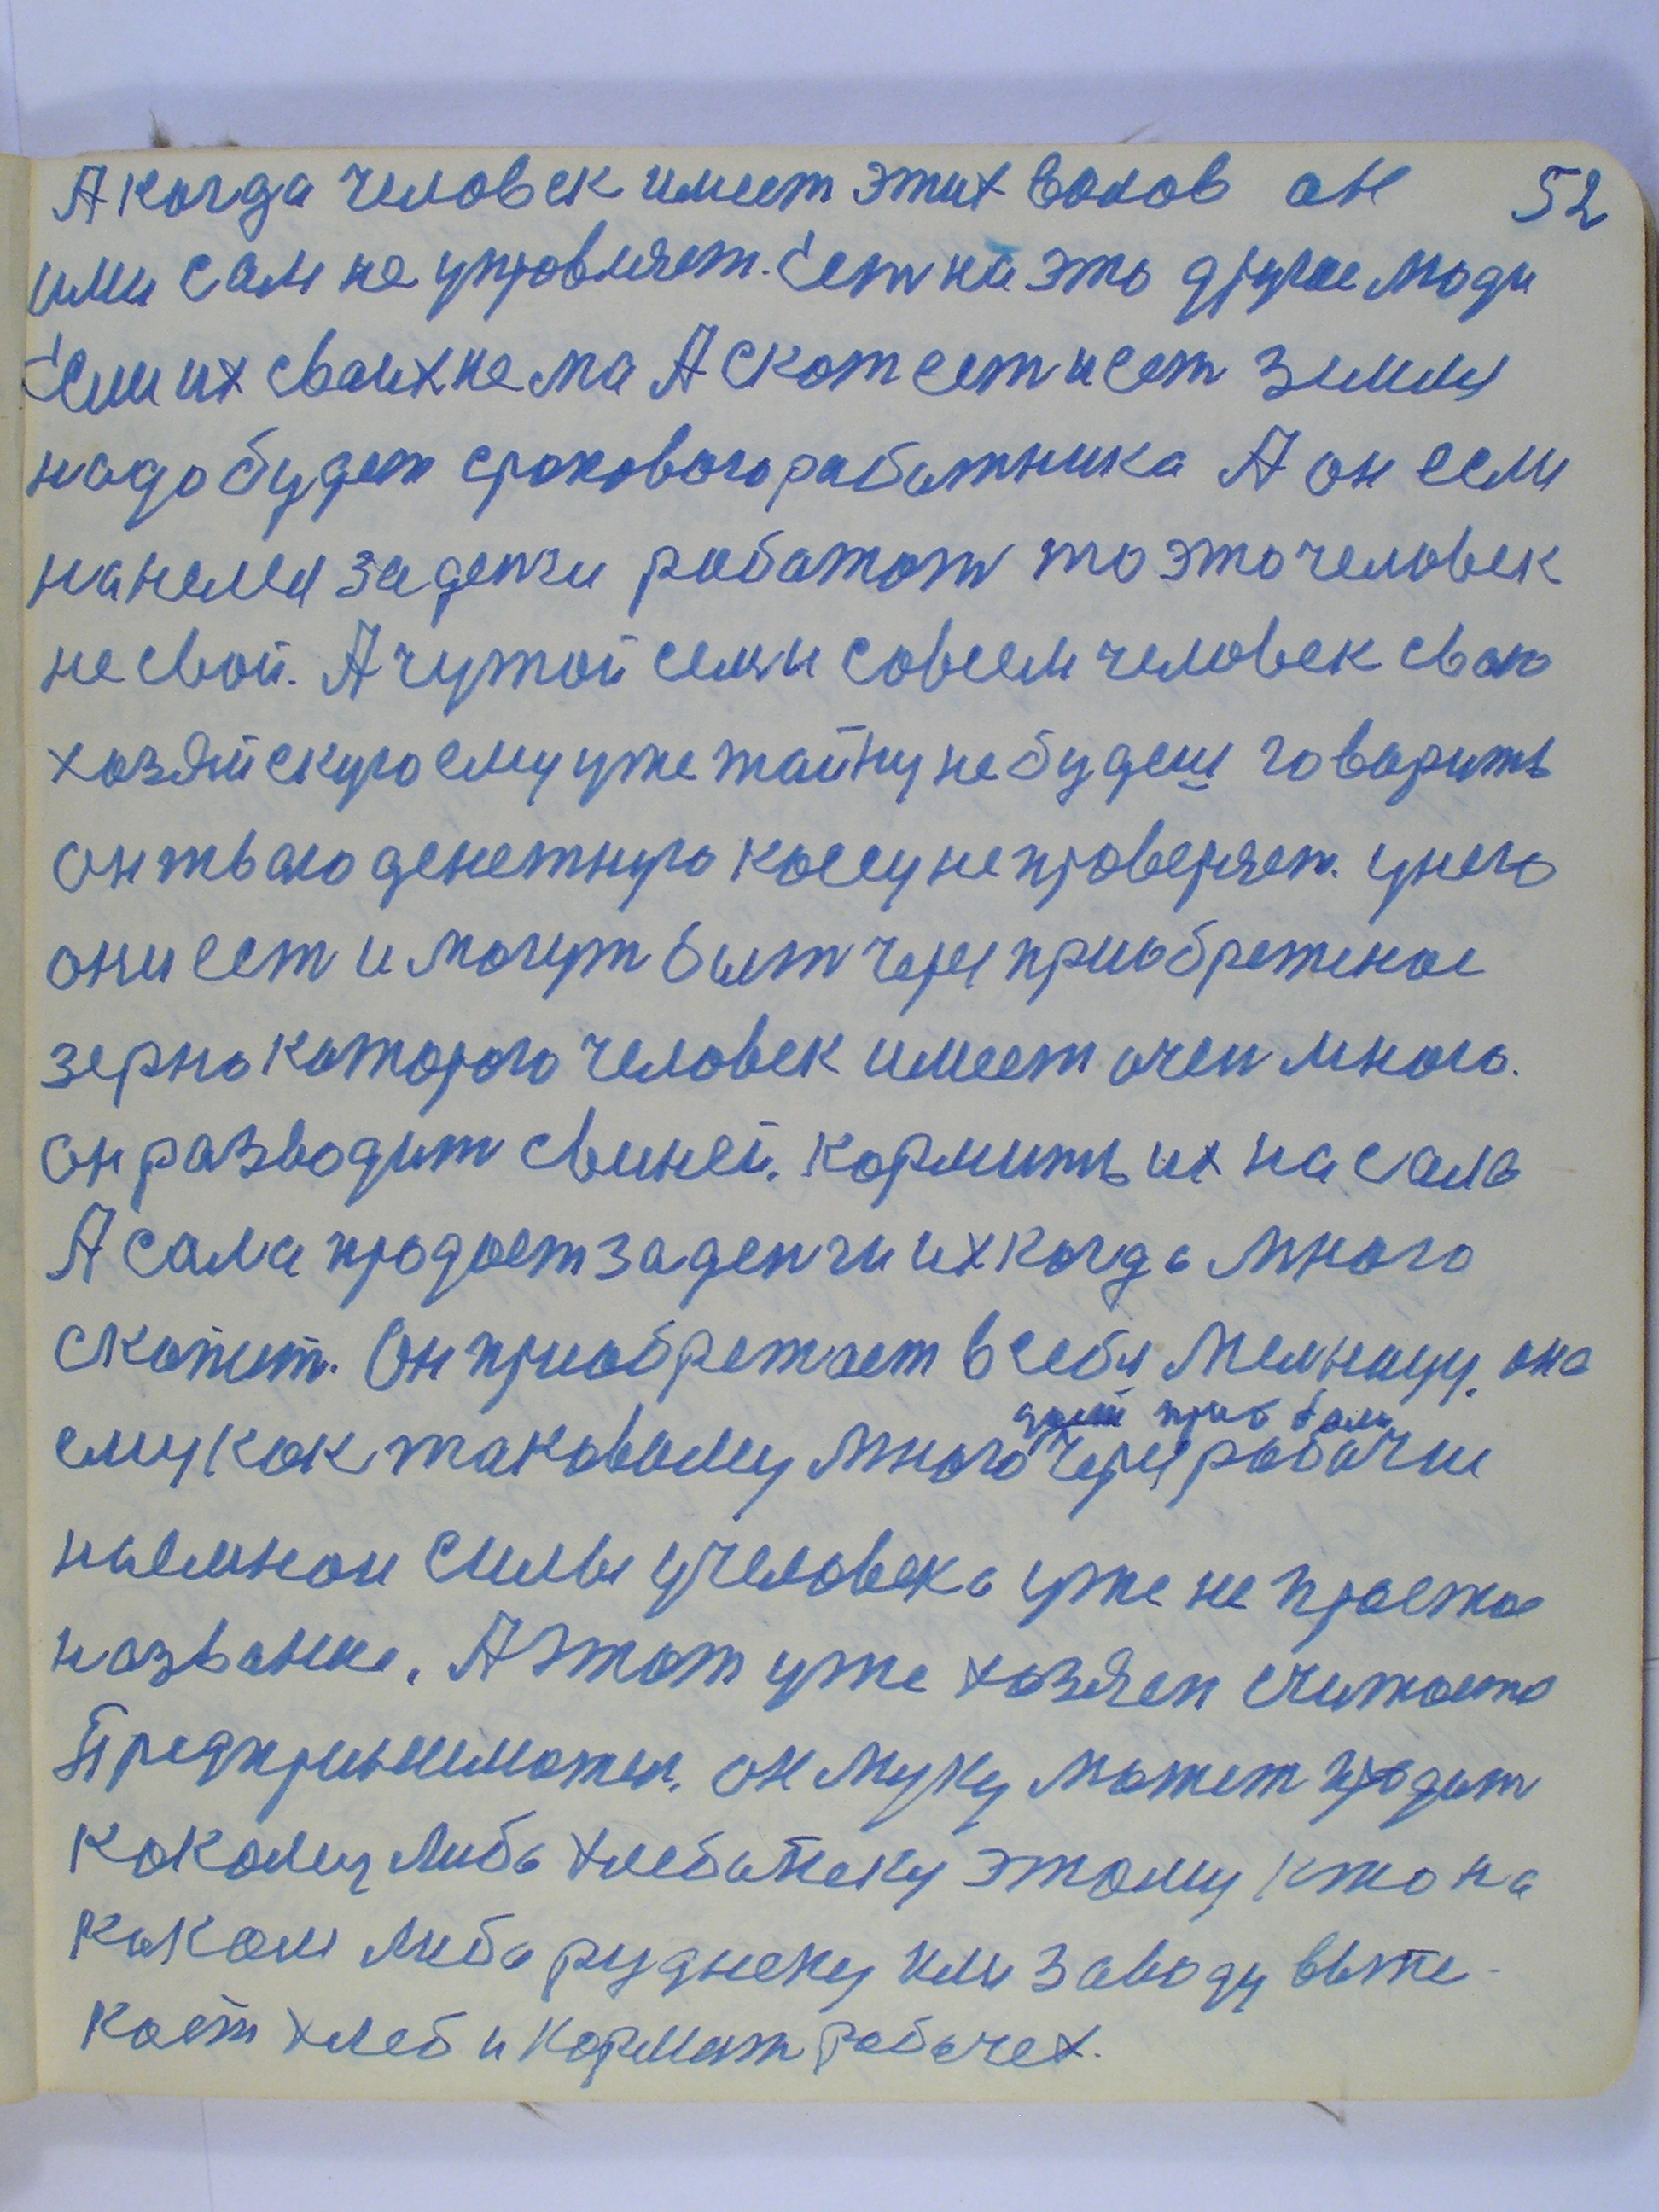 А когда человек имеет этих волов он 52
ими сам не управляет. Ест на это другие люди
Если их своих нема А скот ест и ест земля
надо будет срокового работника А он если
нанелся за денги работат то это человек
не свой. А чужой семи совсем человек свою
хозяйскую ему уже тайну не будеш говорить
он твою денежную кассу не проверяет. у него
они ест и могут быт через приобретеное
зерно которого человек имеет очен много.
он разводит свиней. кормить их на сало
А сала продает за денги их когда много
скопит. Он приобретает в себя мелницу. она
ему как таковому много через рабочии
дает прибыль
наемнои силы у человека уже не простое
название. А этот уже хозяен считается
Предприниматель. он муку может продат
какому либо хлебопеку этому кто на
каком либо руднеку или заводу выпе-
кает хлеб и кормит рабочех.